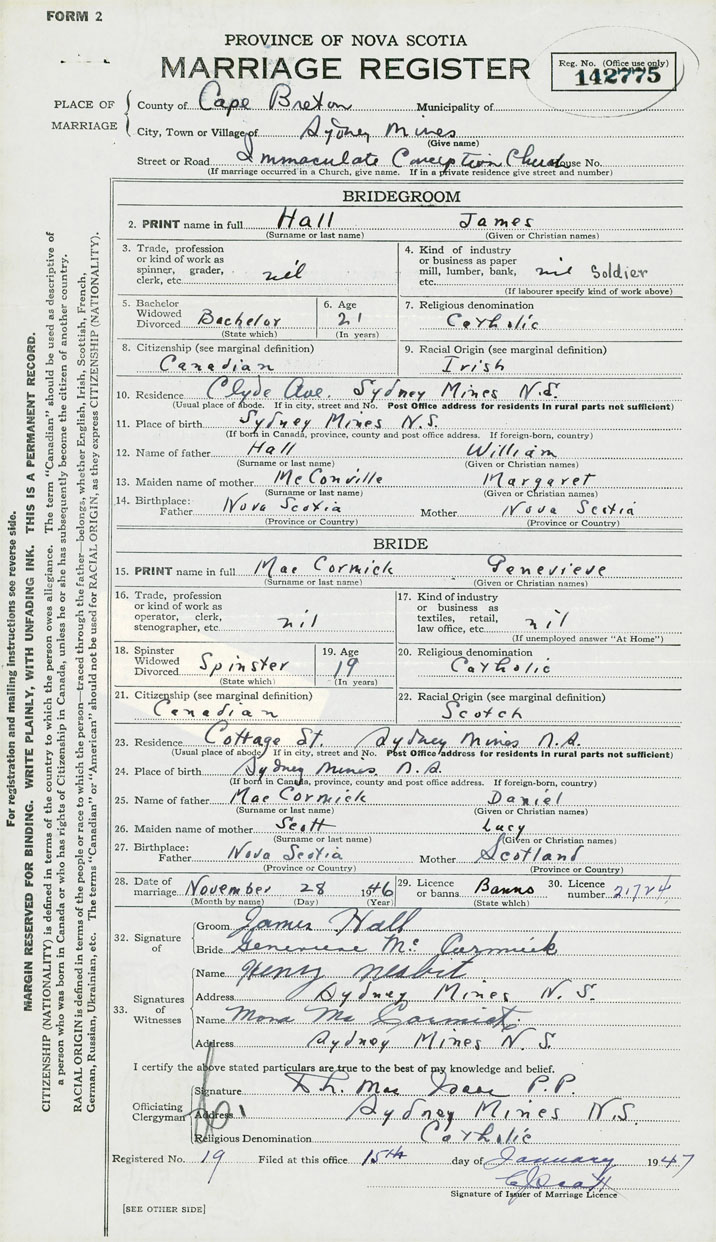 FORM 2
PROVINCE OF NOVA SCOTIA
MARRIAGE REGISTER
Reg. No. (Office use only)
142775
PLACE OF MARRIAGE
County of Cape Breton Municipality of
City, Town or Village of Sydney Mines
(Give name)
Street or Road Immaculate Conception Church House No.
(If marriage occurred in a Church, give name. If in a private residence give street and number)
BRIDEGROOM
2. PRINT name in full Hall James
(Surname or last name) (Given or Christian names)
3. Trade, profession or kind of work as spinner, grader, clerk, etc. nil
4. Kind of industry or business as paper mill, lumber, bank, etc. nil Soldier
(If labourer specify kind of work above)
5. Bachelor Widowed Divorced Bachelor
(State which)
6. Age 21
(In years)
7. Religious denomination
Catholic
8. Citizenship (see marginal definition)
Canadian
9. Racial Origin (see marginal definition)
Irish
10. Residence Clyde Ave. Sydney Mines N.S.
(Usual place of abode. If in city, street and No. Post Office address for residents in rural parts not sufficient)
11. Place of birth Sydney Mines N.S.
(If born in Canada, province, county and post office address. If foreign-born, country)
12. Name of father Hall William
(Surname or last name) (Given or Christian names)
13. Maiden name of mother McConville Margaret
(Surname or last name) (Given or Christian names)
14. Birthplace: Father Nova Scotia Mother Nova Scotia
(Province or Country) (Province or Country)
BRIDE
15. PRINT name in full Mac Cormick Genevieve
(Surname or last name) (Given or Christian names)
16. Trade, profession or kind of work as operator, clerk, stenographer, etc. nil
17. Kind of industry or business as textiles, retail, law office, etc. nil
(If unemployed answer "At Home")
18. Spinster Widowed Divorced Spinster
(State which)
19. Age 19
(In years)
20. Religious denomination
Catholic
21. Citizenship (see marginal definition)
Canadian
22. Racial Origin (see marginal definition)
Scotch
23. Residence Cottage St. Sydney Mines N.S.
(Usual place of abode. If in city, street and No. Post Office address for residents in rural parts not sufficient)
24. Place of birth Sydney Mines N.S.
(If born in Canada, province, county and post office address. If foreign-born, country)
25. Name of father Mac Cormick Daniel
(Surname or last name) (Given or Christian names)
26. Maiden name of mother Scott Lucy
(Surname or last name) (Given or Christian names)
27. Birthplace: Father Nova Scotia Mother Scotland
(Province or Country) (Province or Country)
28. Date of marriage November 28 1946
(Month by name) (Day) (Year)
29. Licence or banns Banns
(State which)
30. Licence number 21724
32. Signature of
Groom James Hall
Bride Genevieve Mc Cormick
33. Signatures of Witnesses
Name Henry Nesbit
Address Sydney Mines N.S.
Name Mona Mc Cormick
Address Sydney Mines N.S.
I certify the above stated particulars are true to the best of my knowledge and belief.
Officiating Clergyman
Signature Mac Isaac P.P.
Address Sydney Mines N.S.
Religious Denomination Catholic
Registered No. 19 Filed at this office 15th day of January 1947
Signature of Issuer of Marriage Licence
[SEE OTHER SIDE]
For registration and mailing instructions see reverse side.
MARGIN RESERVED FOR BINDING. WRITE PLAINLY, WITH UNFADING INK. THIS IS A PERMANENT RECORD.
CITIZENSHIP (NATIONALITY) is defined in terms of the country to which the person owes allegiance. The term "Canadian" should be used as descriptive of
a person who was born in Canada or who has rights of Citizenship in Canada, unless he or she has subsequently become the citizen of another country.
RACIAL ORIGIN is defined in terms of the people or race to which the person—traced through the father—belongs, whether English, Irish, Scottish, French,
German, Russian, Ukrainian, etc. The terms "Canadian" or "American" should not be used for RACIAL ORIGIN, as they express CITIZENSHIP (NATIONALITY).